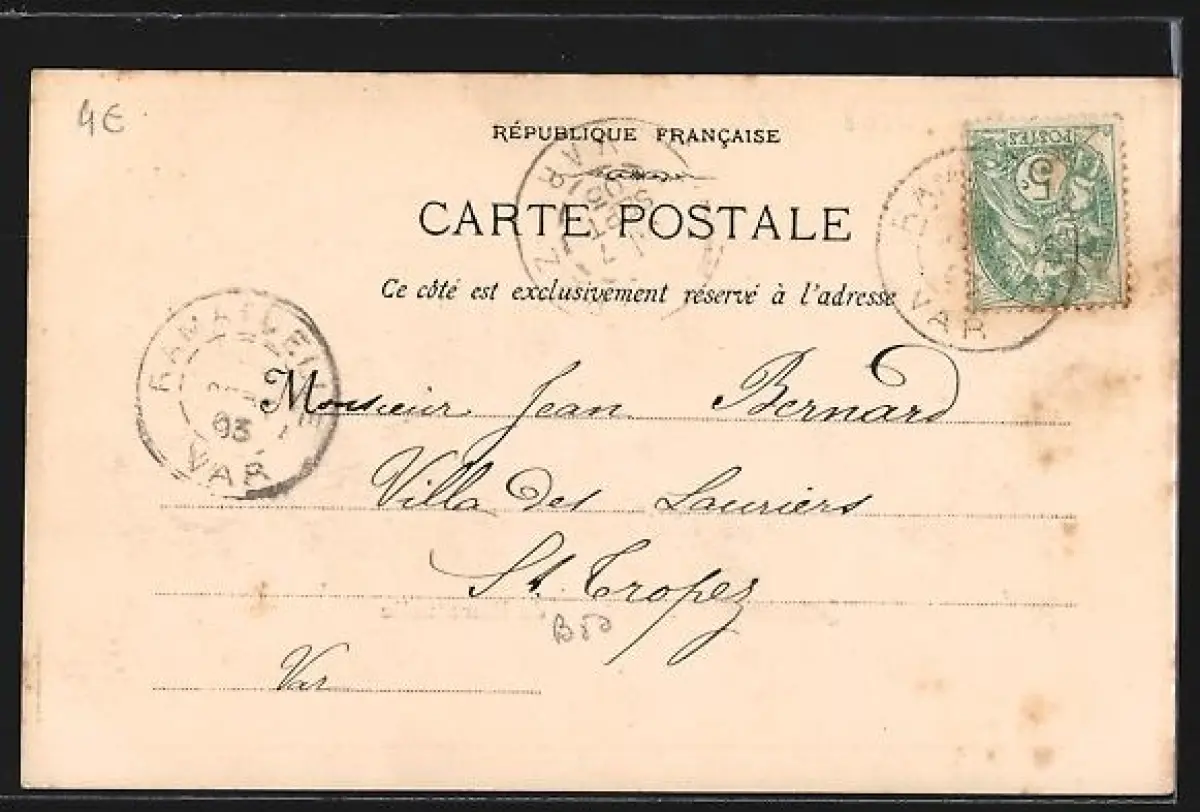 4€
RÉPUBLIQUE FRANÇAISE
CARTE POSTALE
Ce côté est exclusivement réservé à l'adresse
POSTES
5c
VAR
RAMATUELLE
03
VAR
Monsieur Jean Bernard
Villa des Lauriers
St. Tropez
B50
Var